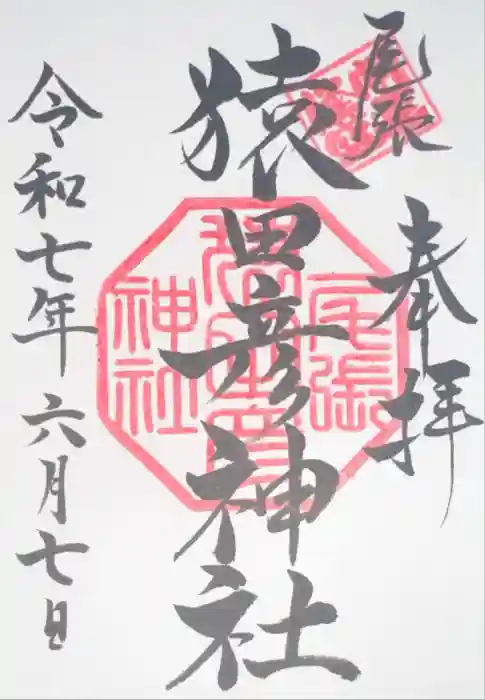 尾張
奉拝
猿田彦神社
尾張
猿田彦
神社
令和七年六月七日